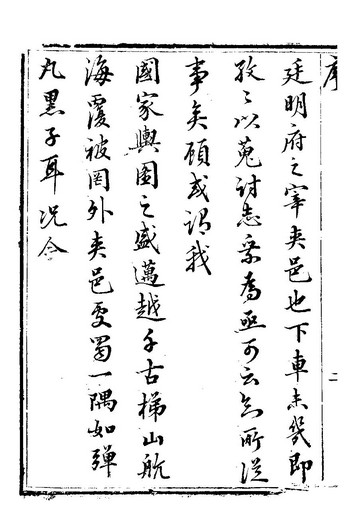 序
二
廷明府之宰夾邑也下車未幾即
孜〻以蒐討志乘為亟可云知所從
事矣顧或謂我
國家輿圖之盛邁越千古梯山航
海覆被罔外夾邑處蜀一隅如彈
丸黑子耳況今